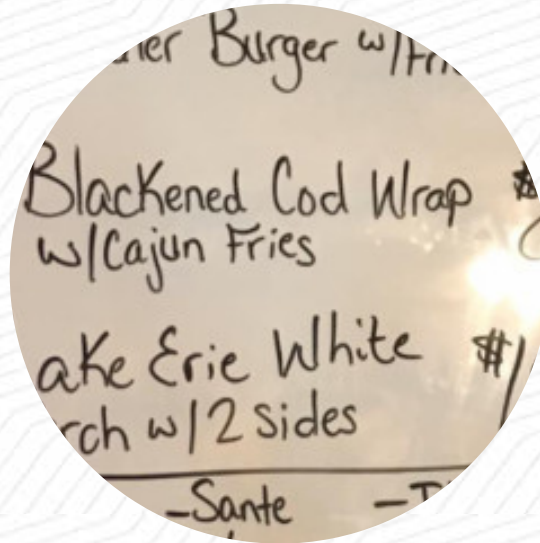 Burger w/
Blackened Cod Wrap $
w/Cajun Fries
ake Erie White $1
rch w/2 sides
-Sante